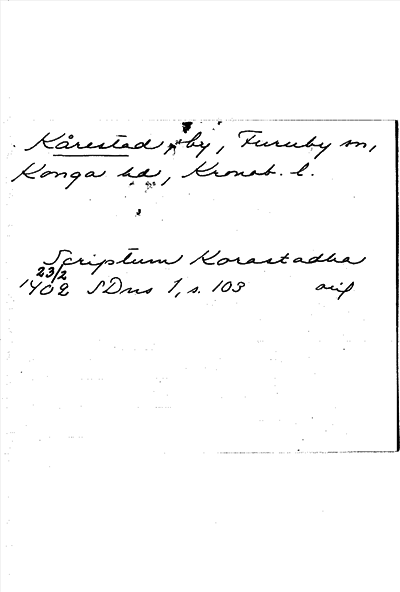 Kårestad, by, Furuby sn,
Konga hd, Kronob. l.
Scriptum Korastadha
23/2
1402 SDns 1, s. 103 avs